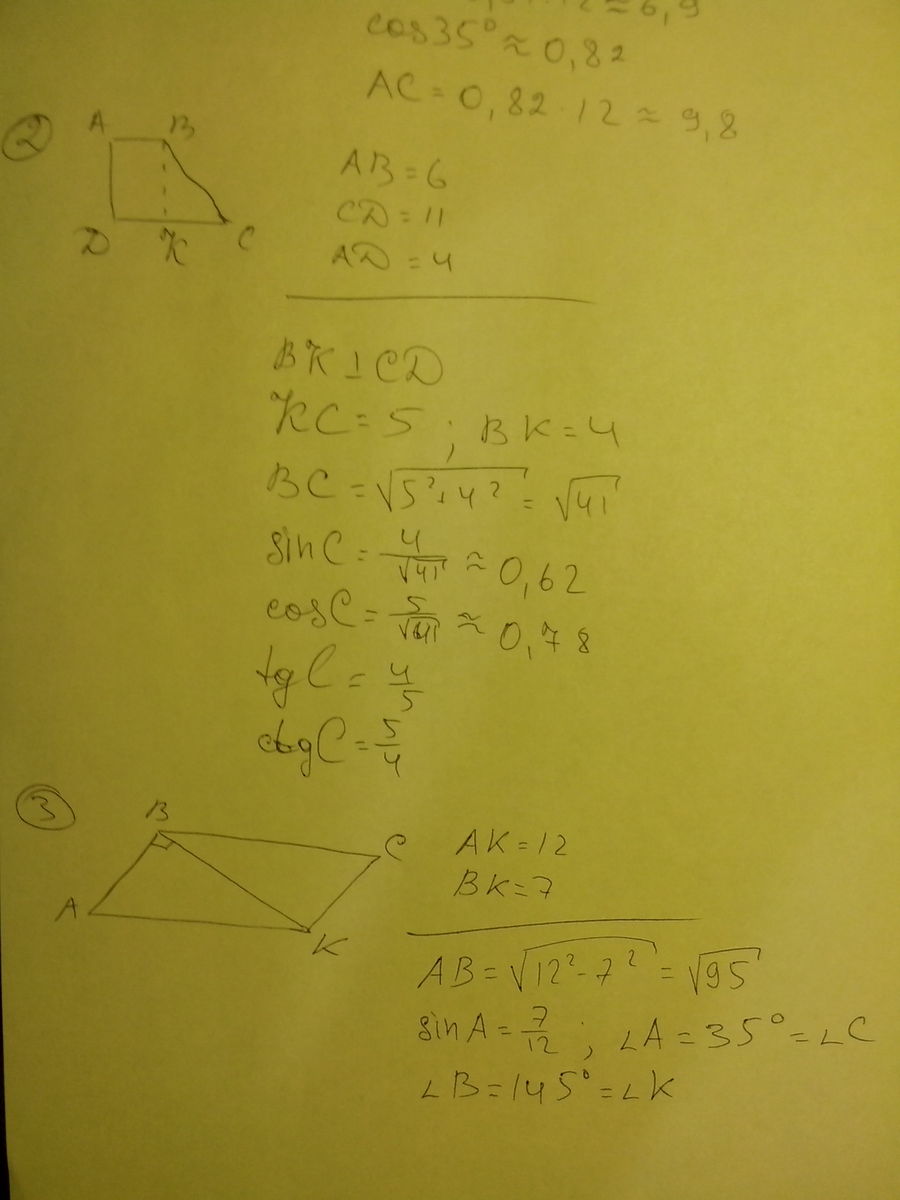 ≈ 6,9
cos35° ≈ 0,82
AC = 0,82 · 12 ≈ 9,8
2
A B
D K C
AB = 6
CD = 11
AD = 4
BK ⊥ CD
KC = 5 ; BK = 4
BC = √(5² + 4²) = √41
sinC = 4/√41 ≈ 0,62
cosC = 5/√41 ≈ 0,78
tgC = 4/5
ctgC = 5/4
3
B C
A K
AK = 12
BK = 7
AB = √(12² - 7²) = √95
sinA = 7/12 ; ∠A = 35° = ∠C
∠B = 145° = ∠K